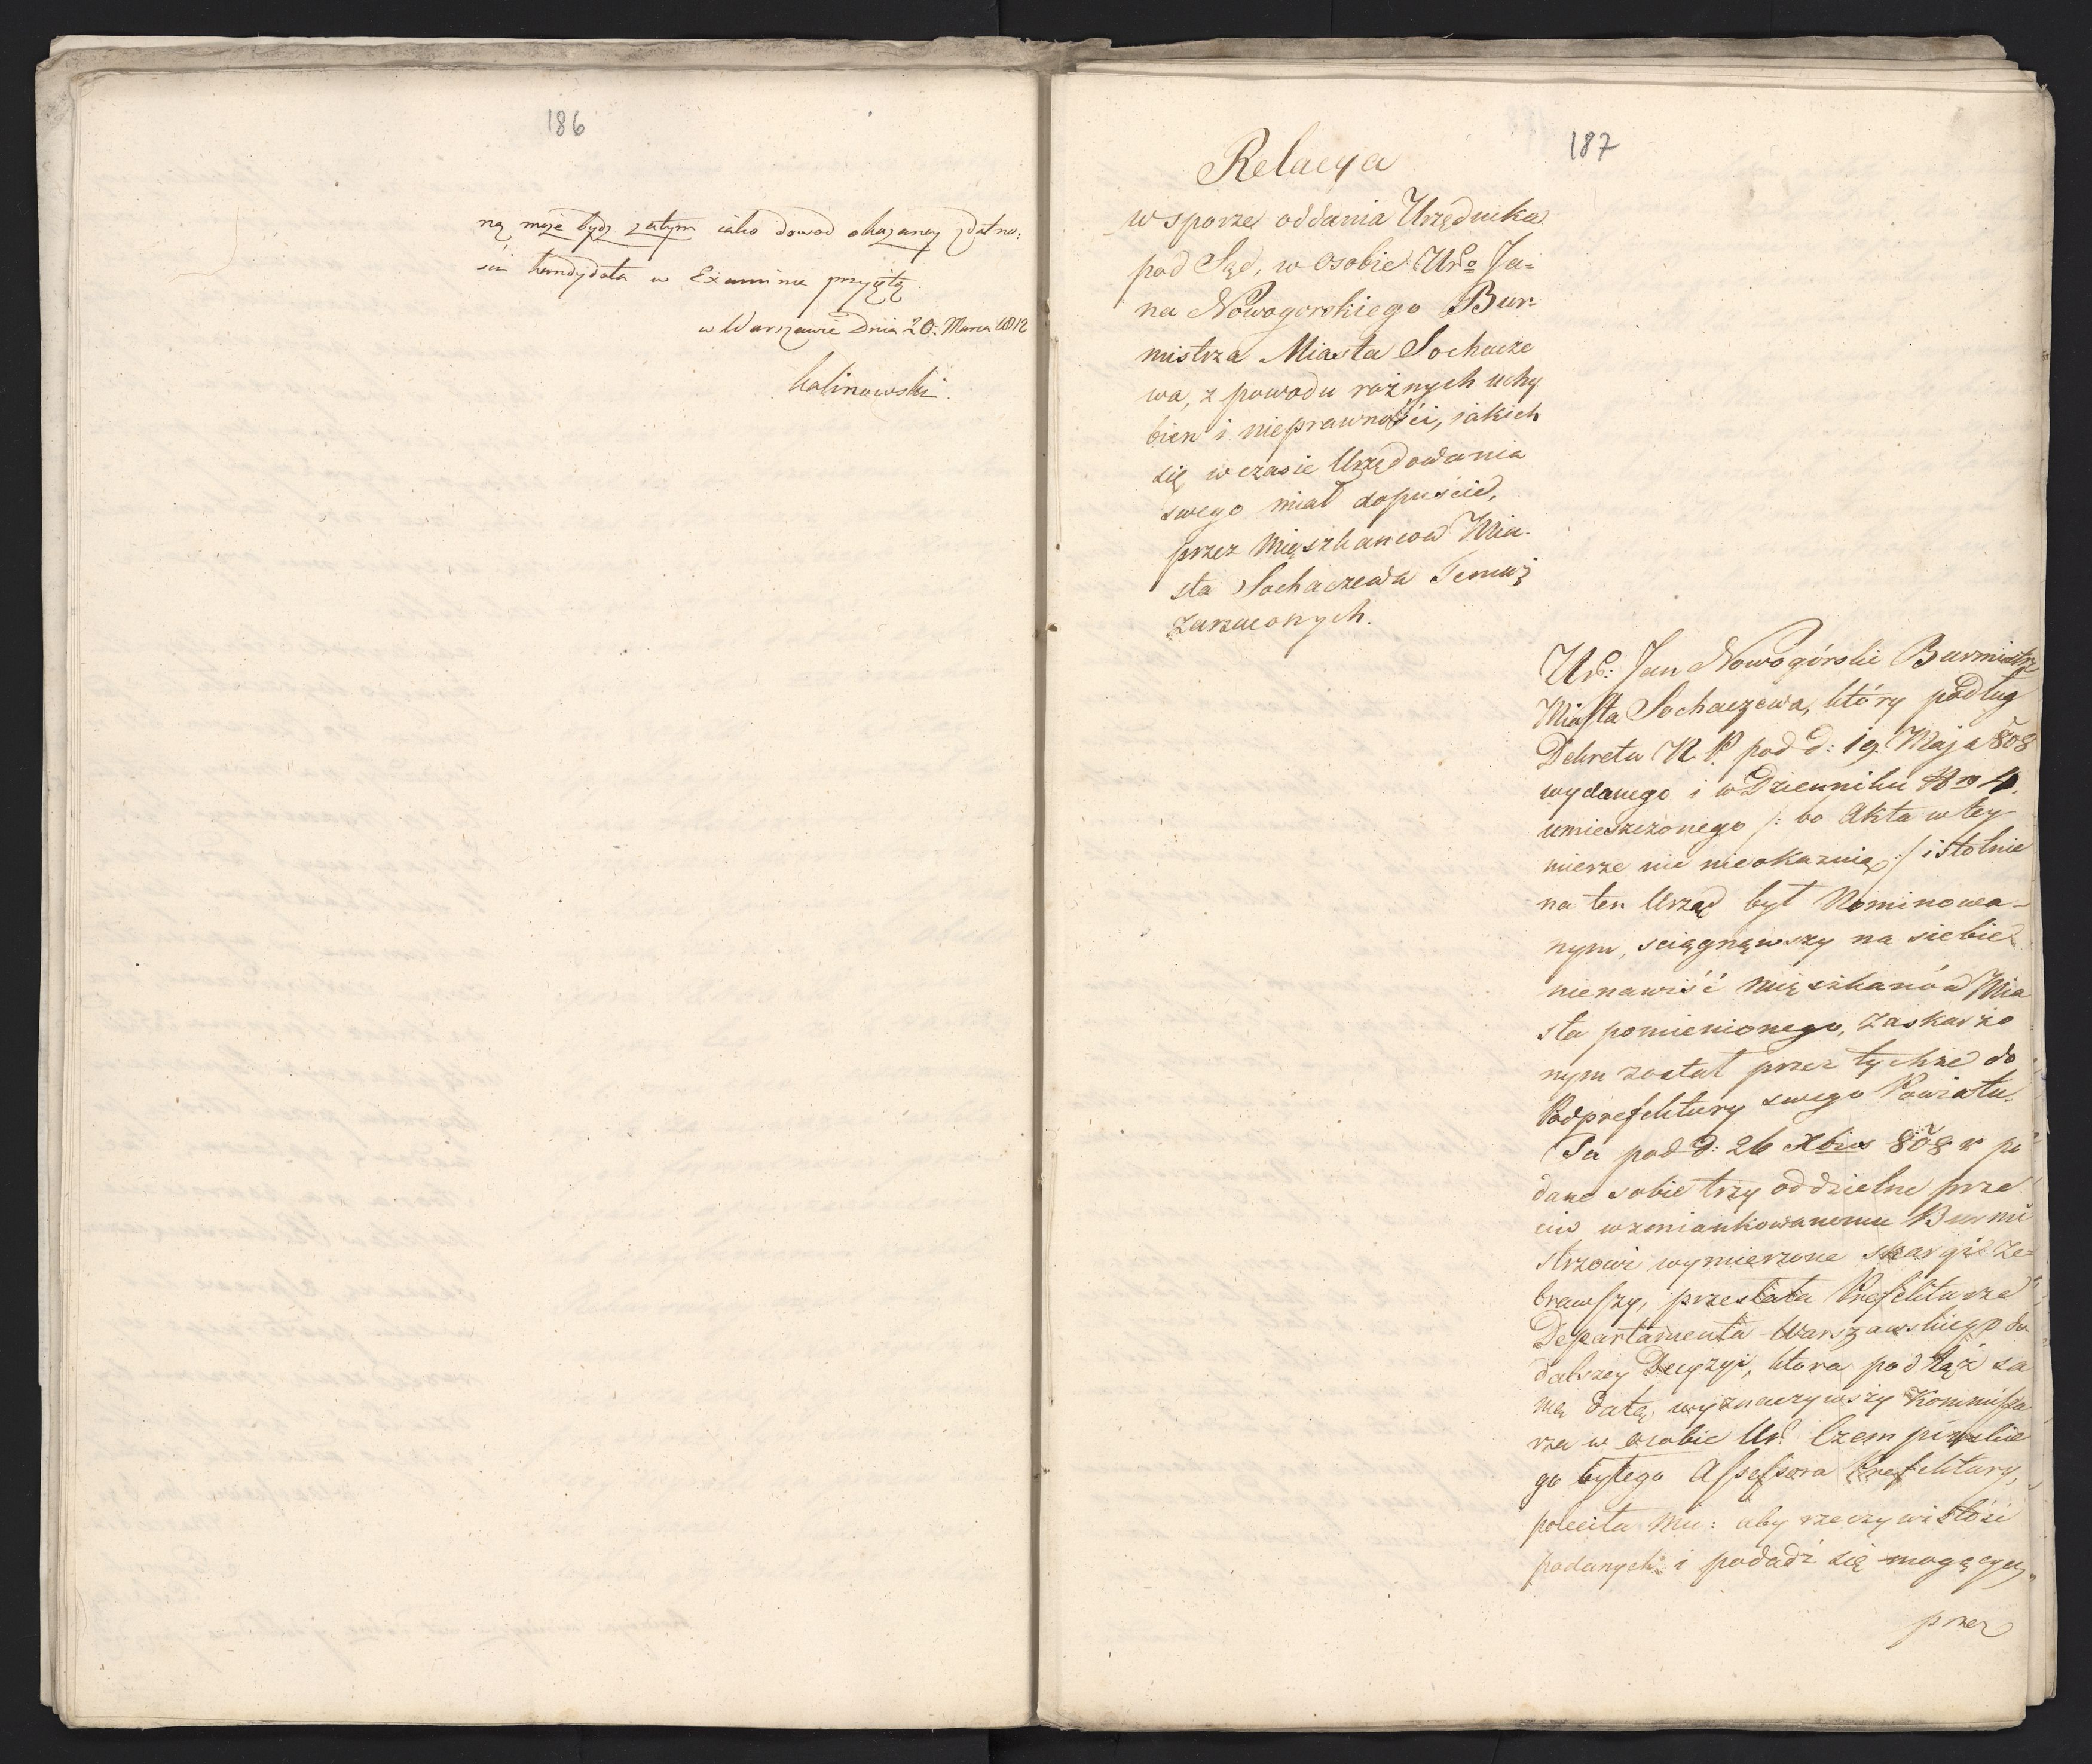 186
ną może bydz zatym iako dowod okazaney zdatno:
ści kandydata w Examinie przyiętą.
w Warszawie Dnia 20. Marca 1812
Kalinowski.
187
Relacya
w sporze oddania Urzędnika
pod Sąd, w osobie Ur⁰ Ja=
na Nowogorskiego Bur-
mistrza Miasta Sochacze
wa, z powodu rożnych uchy
bien i nieprawności, iakich
się w czasie Urzędowania
swego miał dopuście,
przez Mięszkancow Mia-
sta Sochaczewa Temuż
zarzuconych.
Ur: Jan Nowogórski Burmistrz
Miasta Sochaczewa, który podług
Dekretu K. P. pod d: 19. Maja 808
wydanego i w Dzienniku Nro 4.
umieszczonego /: bo Akta w tey
mierze nic nieokazuią :/ istotnie
na ten Urząd był Nominowa-
nym, sciągnąwszy na siebie
nienawiść Mięszkanów Mia
sta pomienionego, zaskarżo
nym został przez tychże do
Podprefektury swego Powiatu.
Ta pod d: 26 Xbris 808 r po
dane sobie trzy oddzielne prze
ciw wzmiankowanemu Burmi
strzowi wymierzone skargi ze=
brawszy, przesłała Prefekturze
Departamentu Warszawskiego do
dalszey Decyzyi, ktora pod tąż sa
mą datą, wyznaczywszy Kommissa
rza w osobie Ur. Czempinskie
go byłego Assessora Prefektury,
poleciła Mu: aby rzeczywistość
podanych i podadź się mogących
przez